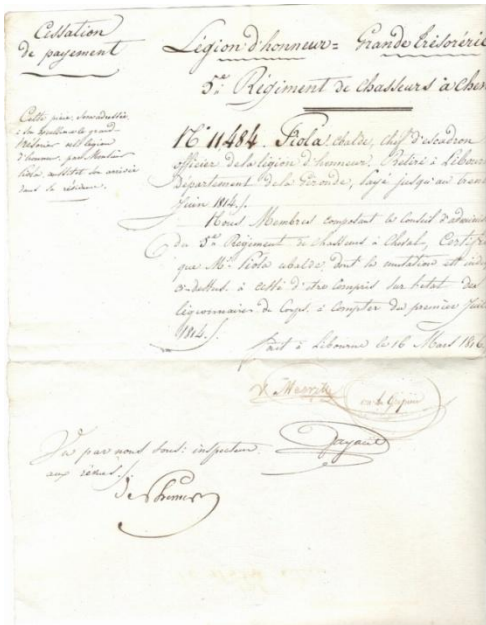 Cessation
de payement
Cette pièce sera adressée
à Son Excellence le grand
trésorier de la légion
d'honneur, par Monsieur
Piola, aussitôt son arrivée
dans sa résidence.
Légion d'honneur = Grande trésorerie
5.e Régiment de chasseurs à chev
N.o 11484. Piola ubalde, chef d'escadron
officier de la légion d'honneur, retiré à Libourne
Département de la Gironde, payé jusqu'au trente
Juin 1814./.
Nous Membres composant le Conseil d'admini
du 5.e Régiment de chasseurs à Cheval, Certifi
que M.r Piola ubalde, dont la mutation est indiq
ci-dessus, a cessé d'être compris sur l'état des
légionnaires du Corps, à compter du premier Juil
1814./.
Fait à Libourne le 16 Mars 1816
Vu par nous sous-inspecteur
aux revues./.